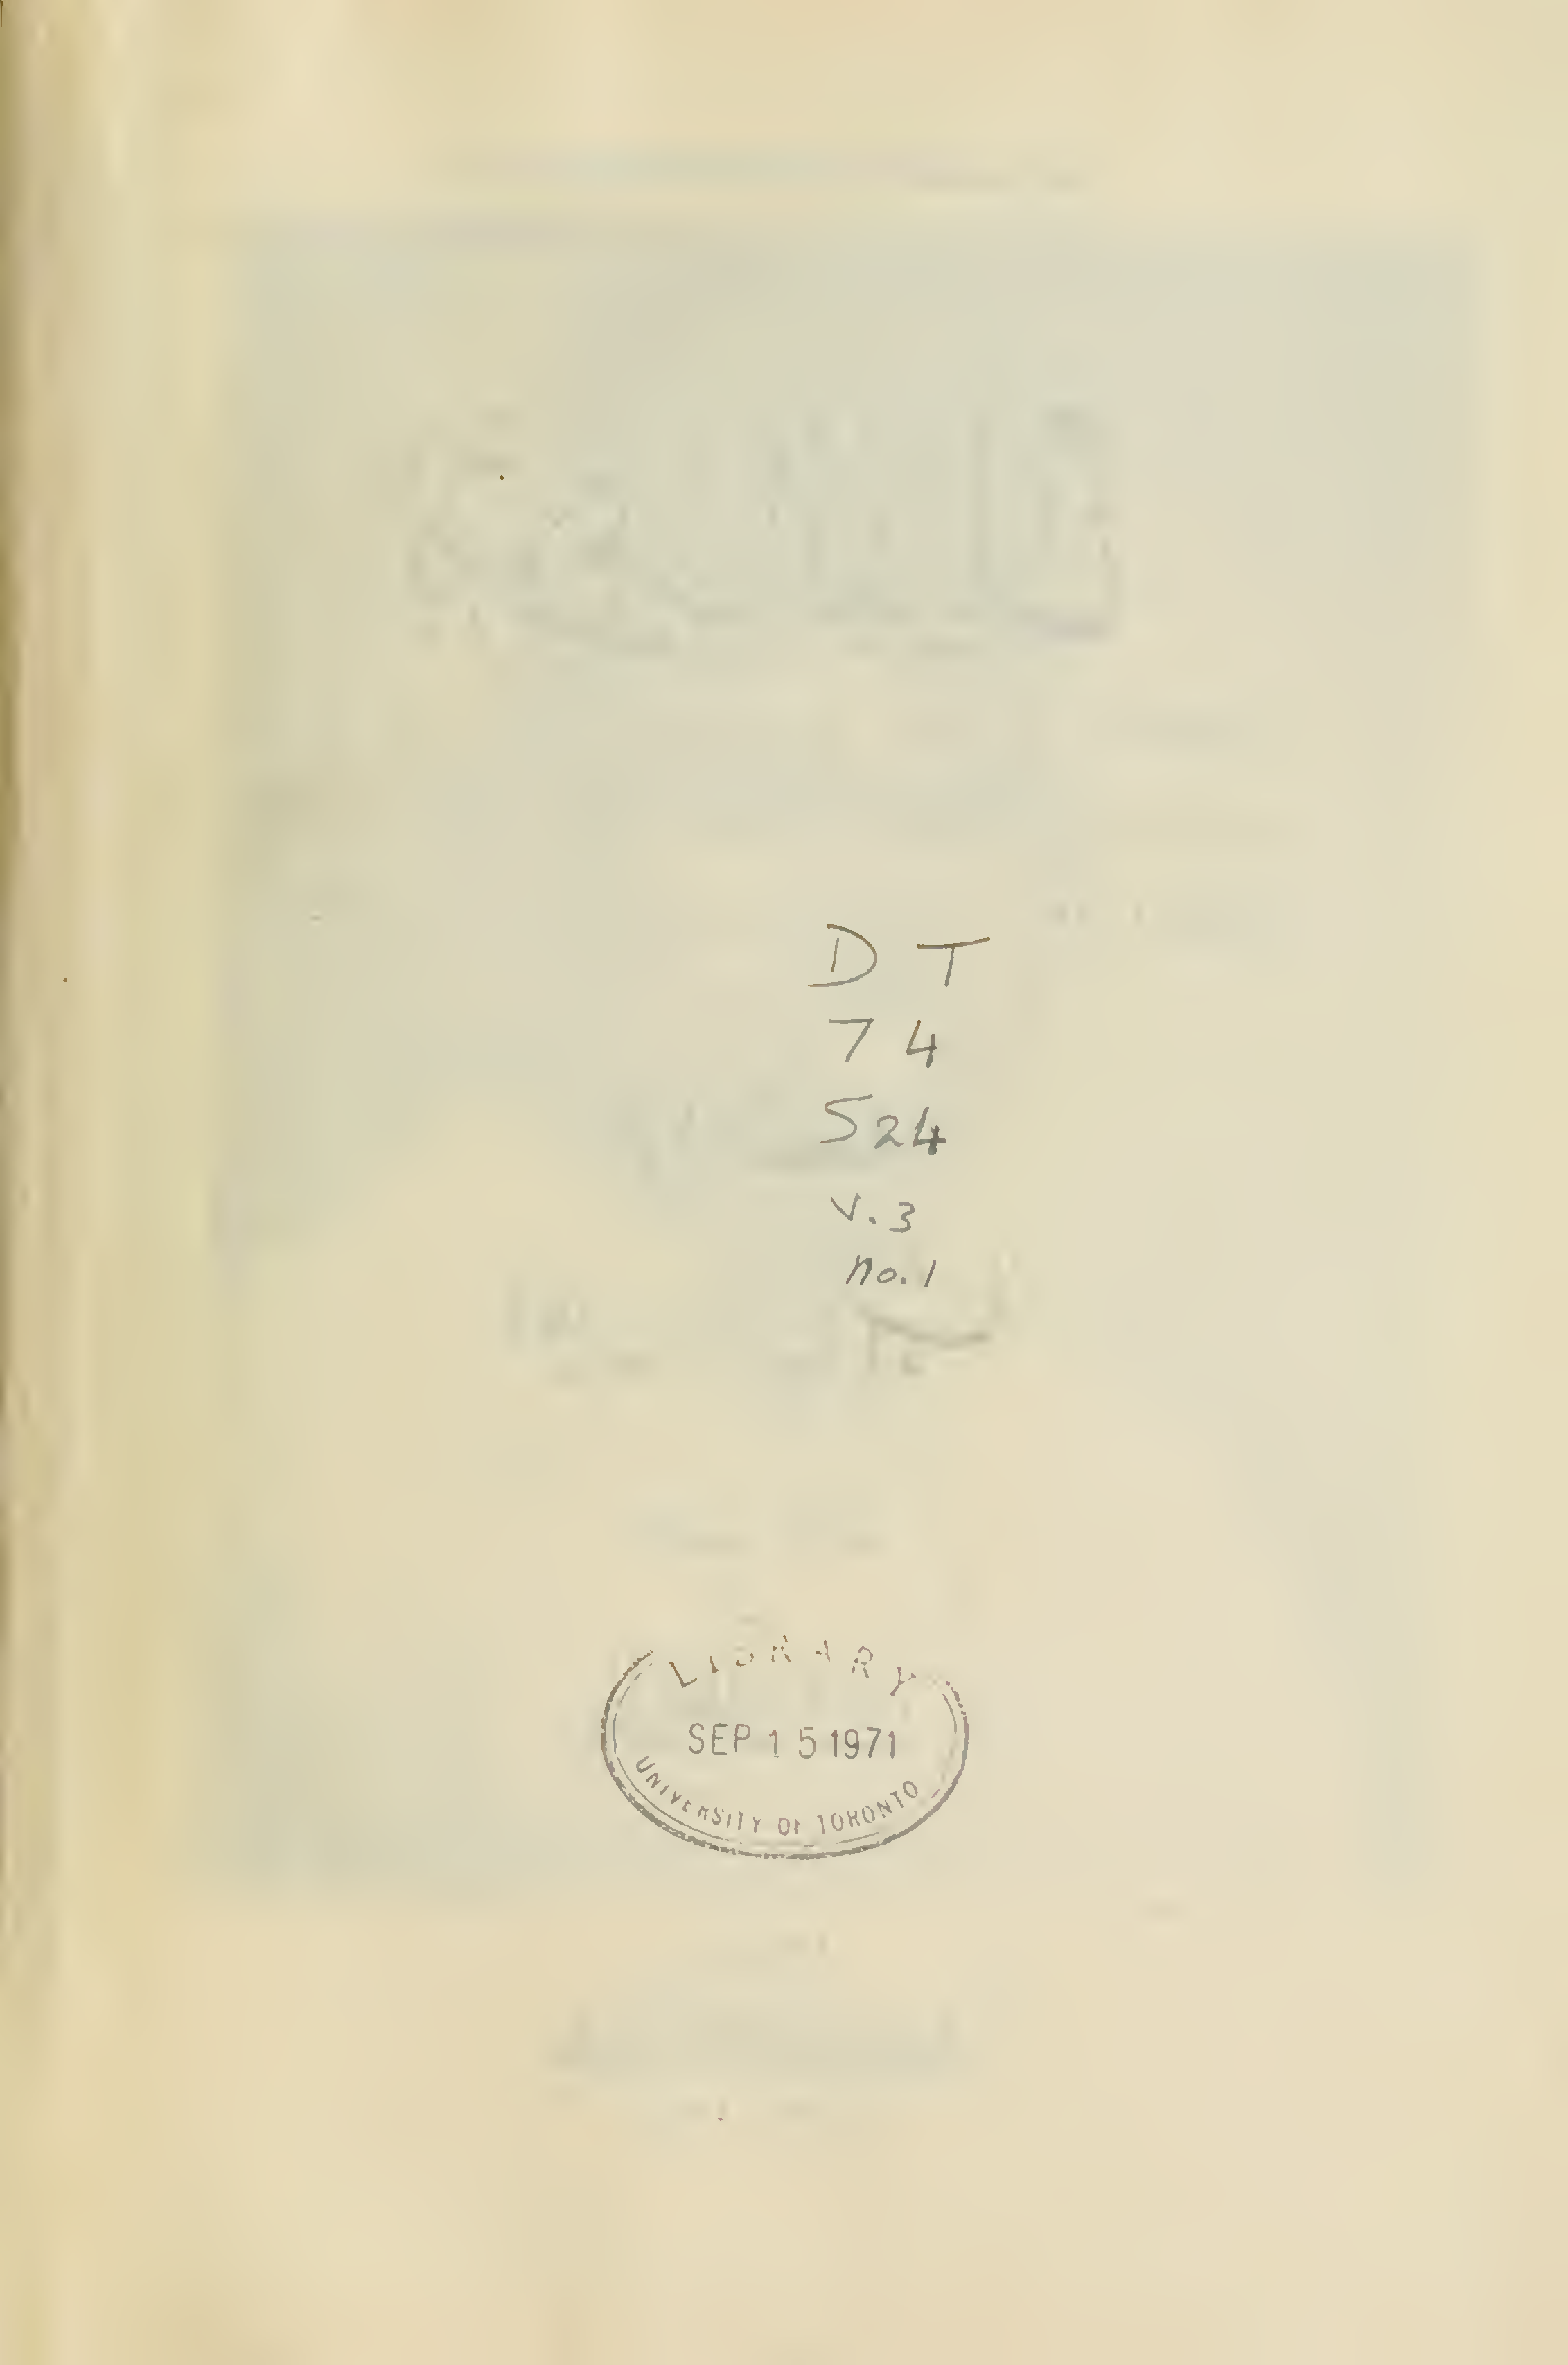 D T
74
S24
v.3
no.1
LIBRARY
SEP 15 1971
UNIVERSITY OF TORONTO